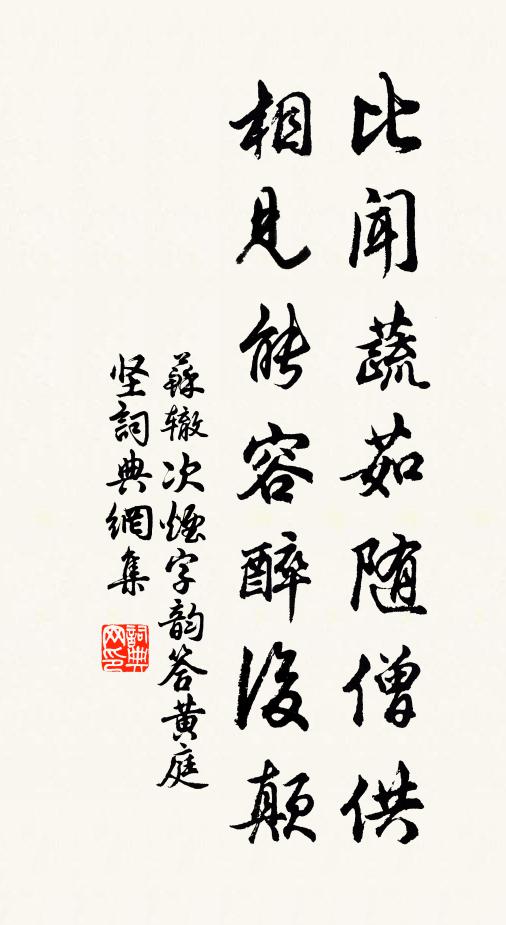 比闻蔬茹随僧供
相见能容醉後颠
蘇辙次煙字韵答黄庭
坚詞典網集
詞典网印